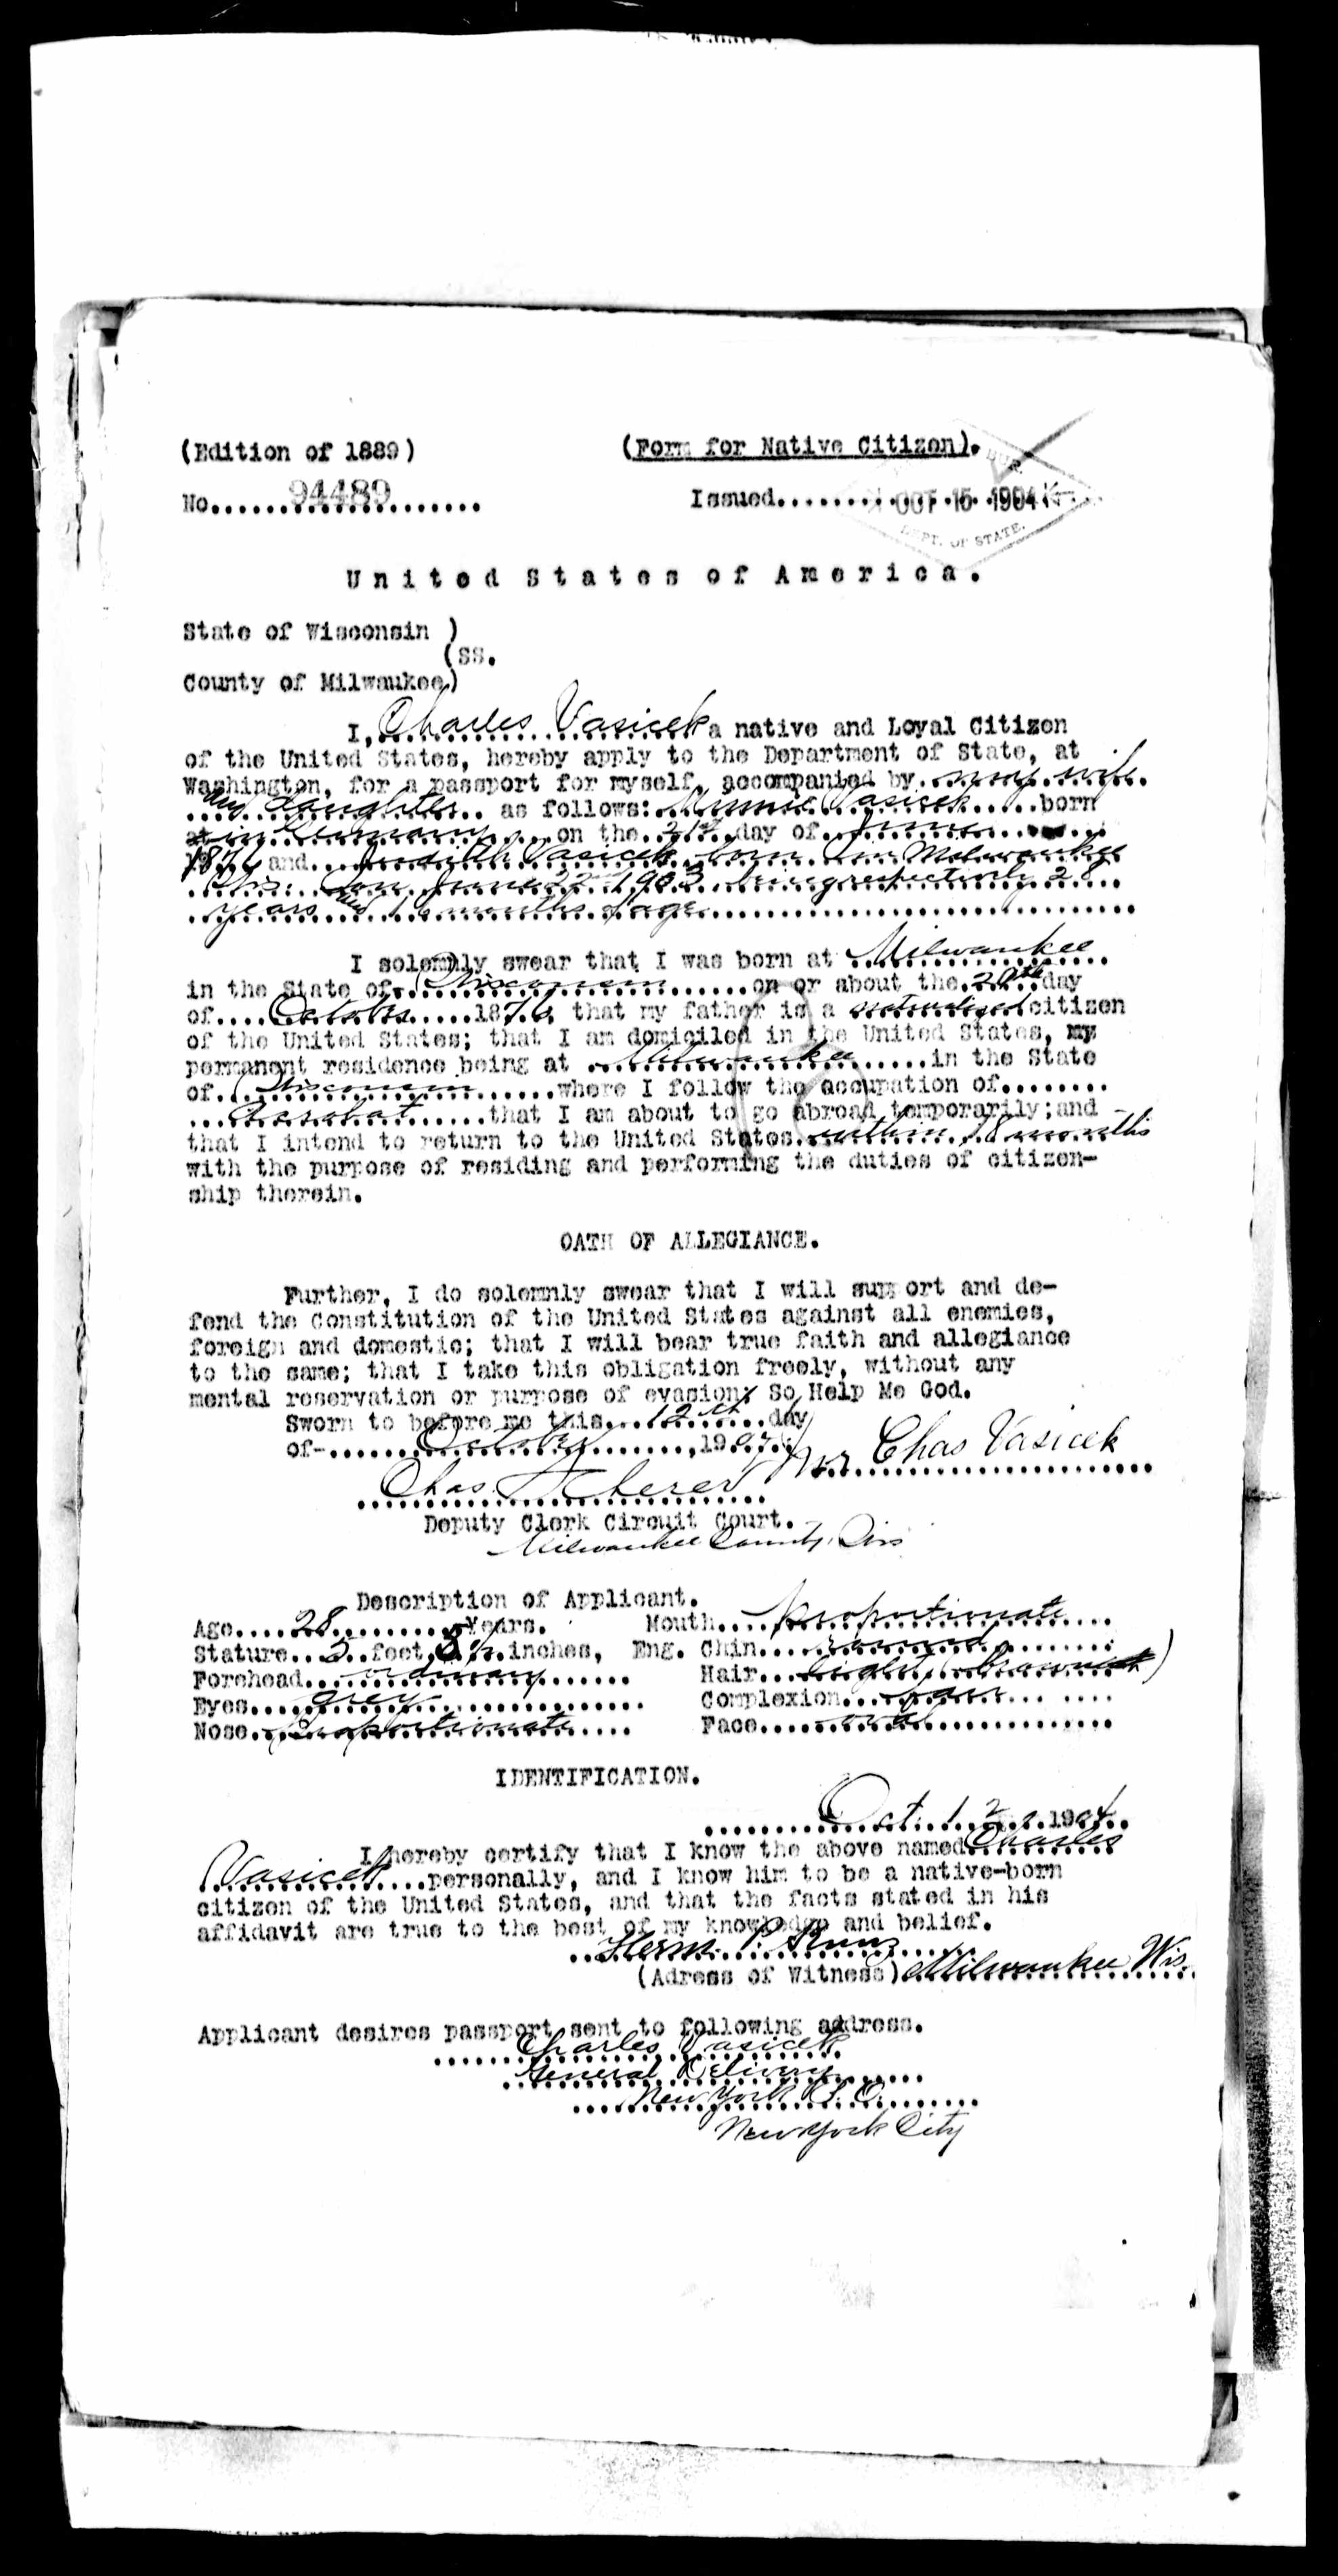 (Edition of 1889) (Form for Native Citizen).
No. 94489 Issued OCT 15 1904
DEPT. OF STATE.
United States of America.
State of Wisconsin )
(SS.
County of Milwaukee)
I, Charles Vasicek a native and Loyal Citizen
of the United States, hereby apply to the Department of State, at
Washington, for a passport for myself, accompanied by my wife
and daughter as follows: Minnie Vasicek born
at in Germany on the 21st day of June
1876 and Judith Vasicek born in Milwaukee
Wis. on June 22 1903 being respectively 28
years and 16 months of age
I solemnly swear that I was born at Milwaukee
in the State of Wisconsin on or about the day
of October 1876, that my father is a naturalized citizen
of the United States; that I am domiciled in the United States, my
permanent residence being at Milwaukee in the State
of Wisconsin where I follow the occupation of
Acrobat that I am about to go abroad temporarily; and
that I intend to return to the United States within 18 months
with the purpose of residing and performing the duties of citizen-
ship therein.
OATH OF ALLEGIANCE.
Further, I do solemnly swear that I will support and de-
fend the Constitution of the United States against all enemies,
foreign and domestic; that I will bear true faith and allegiance
to the same; that I take this obligation freely, without any
mental reservation or purpose of evasion: So Help Me God.
Sworn to before me this 12th day
of- October, 1904 Mr Chas Vasicek
Chas. Scherer
Deputy Clerk Circuit Court.
Milwaukee County, Wis
Description of Applicant.
Age 28 Years. Mouth proportionate
Stature 5 feet, 8 ½ inches, Eng. Chin round
Forehead ordinary Hair light (brownish)
Eyes grey Complexion fair
Nose proportionate Face oval
IDENTIFICATION.
Oct. 12 1904
I hereby certify that I know the above named Charles
Vasicek personally, and I know him to be a native-born
citizen of the United States, and that the facts stated in his
affidavit are true to the best of my knowledge and belief.
Herm. P.
(Adress of Witness) Milwaukee Wis.
Applicant desires passport sent to following address.
Charles Vasicek
General Delivery
New York P. O.
New York City